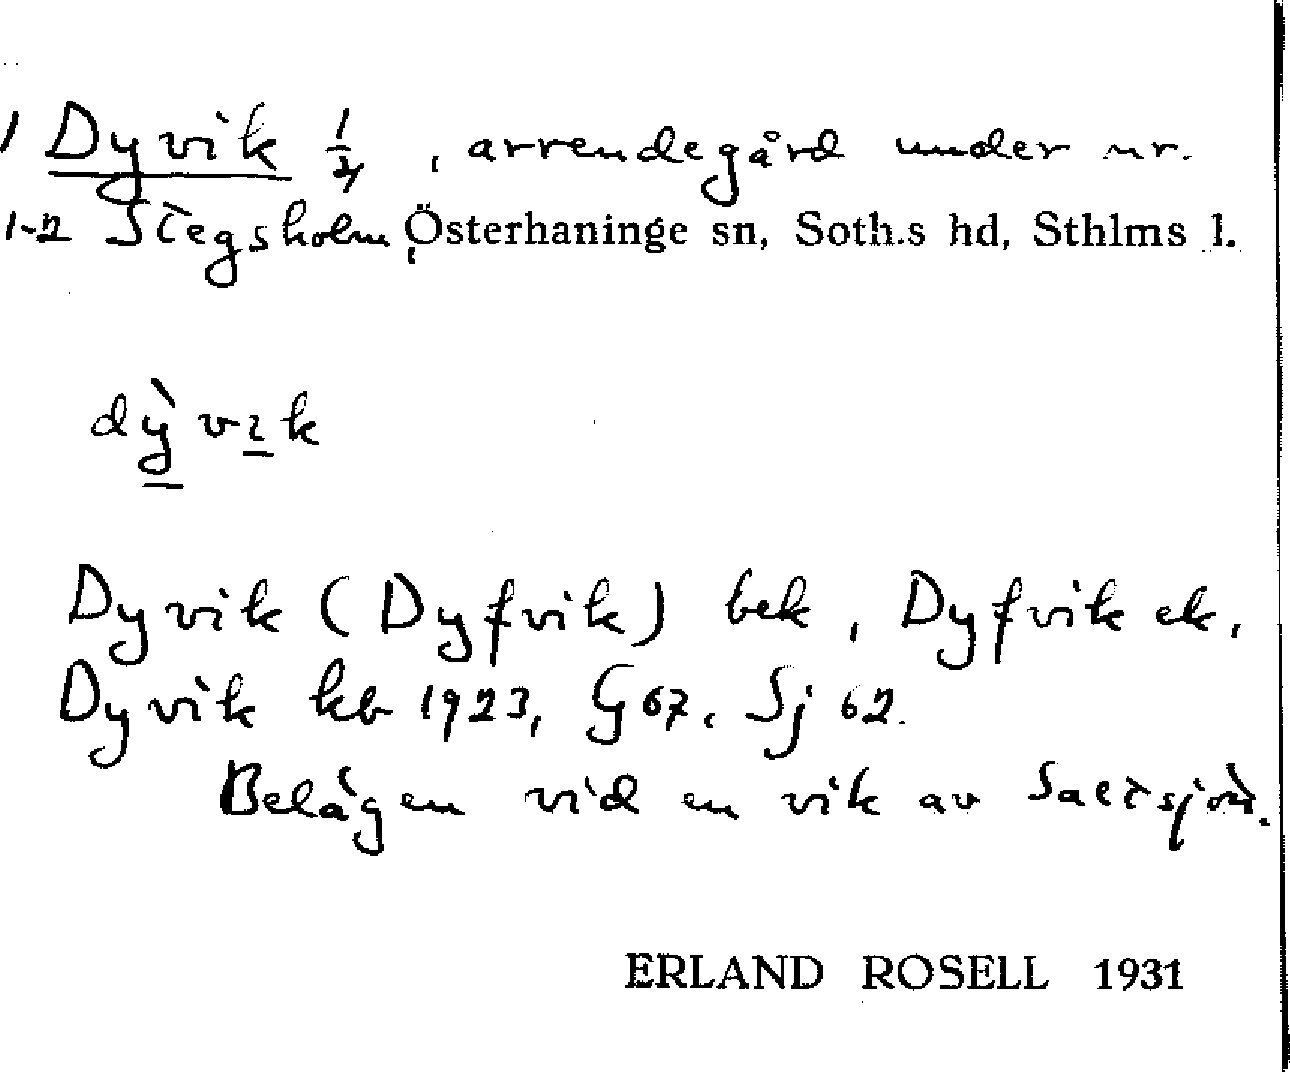 1 Dyvik 1/4, arrendegård under nr.
1-2 Stegsholm, Österhaninge sn, Soth.s hd, Sthlms l.
dỳvık
Dyvik (Dyfvik) bek, Dyfvik ek,
Dyvik kb 1923, G 67, Sj 62.
Belägen vid en vik av Saltsjön.
ERLAND ROSELL 1931